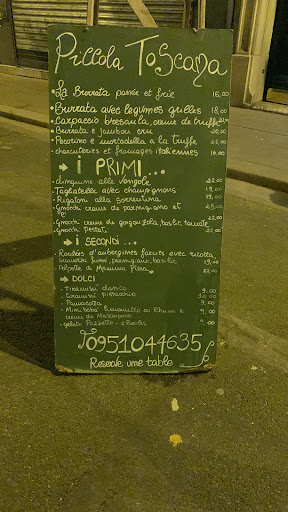 Piccola Toscana
• La Burrata panée et frie 16,00
• Burrata avec legumes grilles 18,00
• Carpaccio bresaola, creme de truffe 21,00
• Burrata e jambon cru 20,00
• Pecorino e mortadella a la truffe 22,00
• charcuteries et fromages italiennes
→ i PRIMI...
• Linguine alle Vongole 22,00
• Tagliatelle avec champignons 19,00
• Rigatoni alla sorrentina
• Gnocchi creme de parmigiano et
• Gnocchi creme de gorgonzola, basilic, tomate
• Gnocchi Pesto
→ i SECONDI...
• Roulés d'aubergines farcies avec ricotta,
fumé, parmigiano, basilic 19,00
• Polpette de Mamma Pina 22,00
→ DOLCI
- Tiramisu classico 9,00
- Tiramisu pistacchio 10,00
- Pannacotta 9,00
- Mini baba limoncello ou Rhum e
creme de Mascarpone
- gelato - 2 Boules 9,00
0951044635
Reserve une table